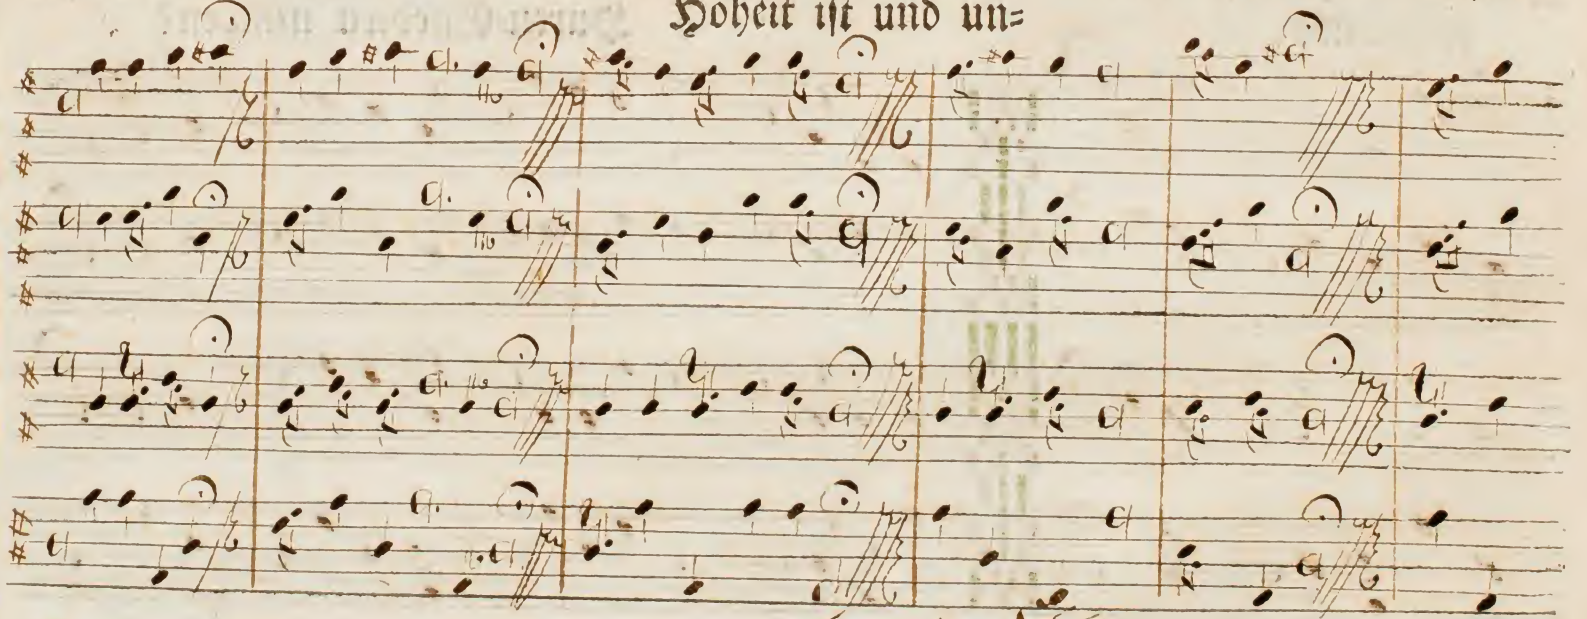 Hoheit ist und un=